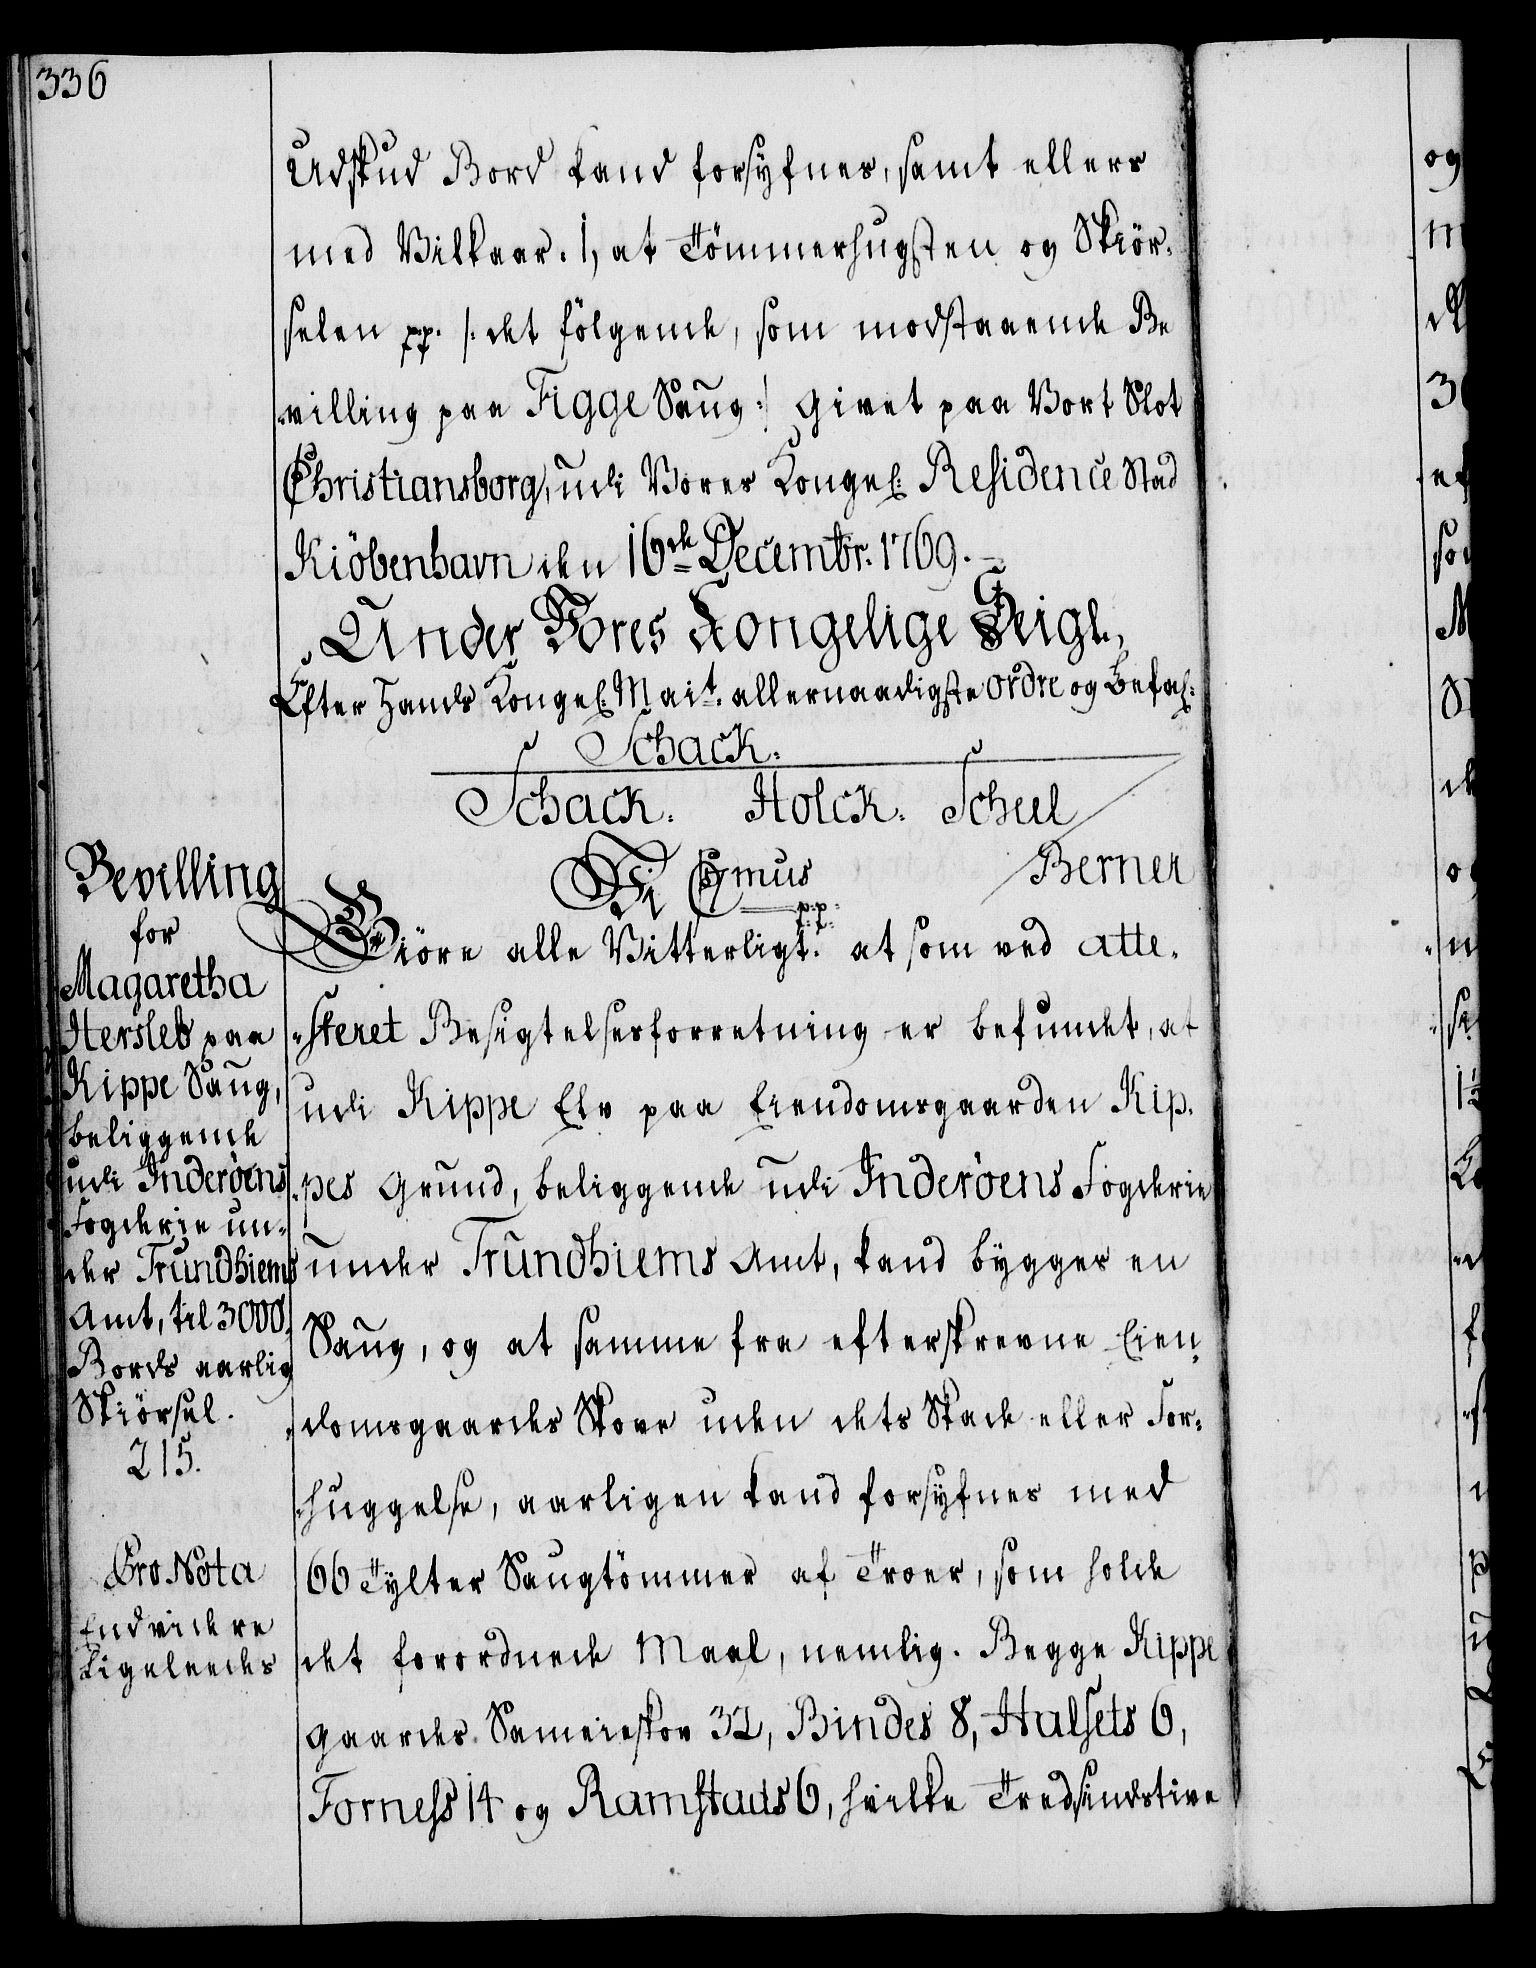 336
Udskud Bord kand forsÿfnes, samt ellers
med Vilkaar. 1, at Tömmerhugsten og Skiör-
selen pp. /: det fölgende, som modstaaende Be
-villing paa Figge Saug :/ Givet paa Vort Slot
Christiansborg, udi Vores Kongel: Residence Stad
Kiöbenhavn den 16de Decembr. 1769.
Under Vores Kongelige Seigl,
Efter Hands Kongel: Mait. allernaadigste ordre og Befal:
Schack.
Schack. Holck. Scheel
Berner
Bevilling
for
Magaretha
Hersleb paa
Kippe Saug,
beliggende
udi Inderöens
Fogderie un-
der Trundhiems
Amt, til 3000
Bords aarlig
Skiörsel.
215.
Vi C 7mus
p.p.
Giöre alle Vitterligt. at som ved atte-
-steret Besigtelsesforretning er befundet, at
udi Kippe Elv paa Eiendomsgaarden Kip-
-pes Grund, beliggende udi Inderöens Fogderie
under Trundhiems Amt, kand bÿgges en
Saug, og at samme fra efterskrevne Eien-
-domsgaardes Skove uden dets Skade eller For-
-huggelse, aarligen kand forsÿfnes med
66 Tÿlter Saugtömmer af Troer, som holde
det forordnede Maal, nemlig. Begge Kippe
gaardes Sameieskov 32, Bindes 8, Halsets 6,
Forness 14 og Ramstads 6, hvilke Tredsindstive
Pro Nota
Endvidere
Ligeleedes